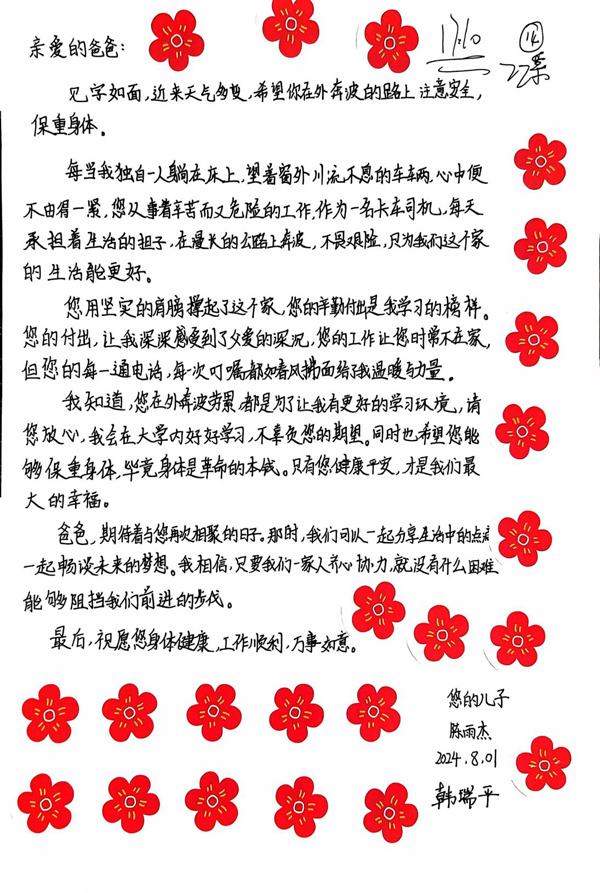 17:10
亲爱的爸爸：
见字如面，近来天气多变，希望你在外奔波的路上注意安全，
保重身体。
每当我独自一人躺在床上，望着窗外川流不息的车车两，心中便
不由得一紧，您从事着辛苦而又危险的工作，作为一名卡车司机，每天
承担着生活的担子，在漫长的公路上奔波，不畏艰险，只为我们这个家
的生活能更好。
您用坚实的肩膀撑起了这个家，您的辛勤付出是我学习的榜样。
您的付出，让我深深感受到了父爱的深沉，您的工作让您时常不在家，
但您的每一通电话，每一次叮嘱都如春风拂面给了我温暖与力量。
我知道，您在外奔波劳累，都是为了让我有更好的学习环境，请
您放心，我会在大学内好好学习，不辜负您的期望。同时也希望您能
够保重身体，毕竟身体是革命的本钱。只有您健康平安，才是我们最
大的幸福。
爸爸，期待着与您再次相聚的日子。那时，我们可以一起分享生活中的点滴
一起畅谈未来的梦想。我相信，只要我们一家人齐心协力，就没有什么困难
能够阻挡我们前进的步伐。
最后，祝愿您身体健康，工作顺利，万事如意。
您的儿子
陈雨杰
2024.8.01
韩瑞平